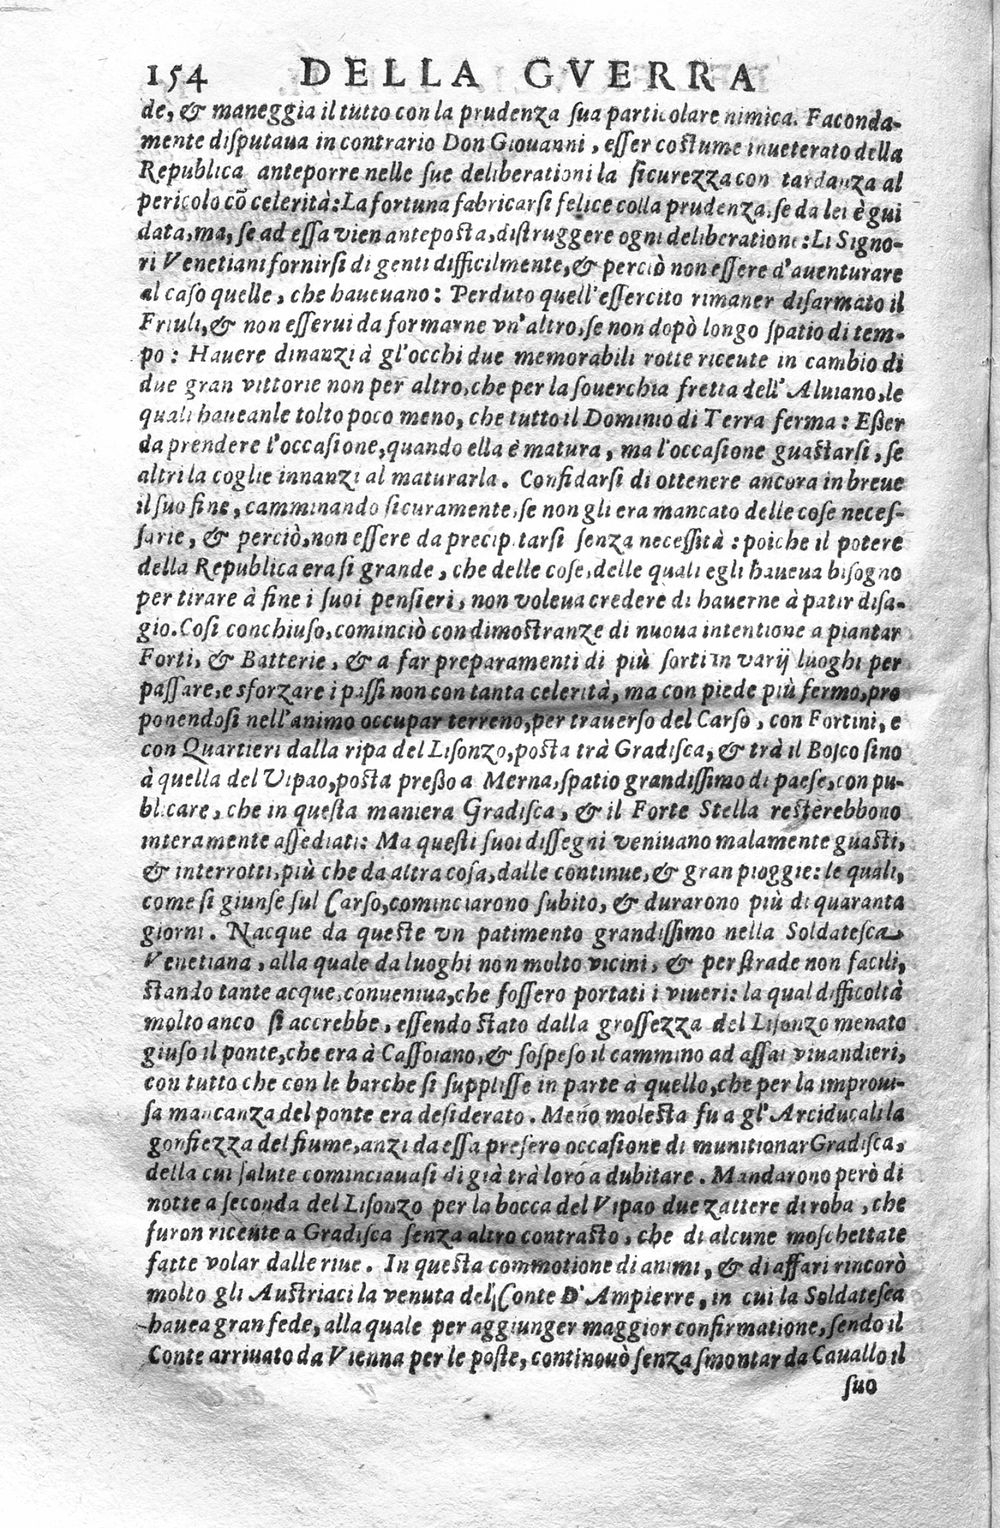 154 DELLA GVERRA
de, & maneggia il tutto con la prudenza sua particolare nimica. Faconda-
mente disputaua in contrario Don Giouanni, esser costume inueterato della
Republica anteporre nelle sue deliberationi la sicurezza con tardanza al
pericolo cō celerità: La fortuna fabricarsi felice colla prudenza, se da lei è gui
data, ma, se ad essa vien anteposta, distruggere ogni deliberatione: Li Signo-
ri Venetiani fornirsi di genti difficilmente, & perciò non essere d'auenturare
al caso quelle, che haueuano: Perduto quell'essercito rimaner disarmato il
Friuli, & non esserui da formarne vn'altro, se non dopò longo spatio di tem-
po: Hauere dinanzi à gl'occhi due memorabili rotte riceute in cambio di
due gran vittorie non per altro, che per la souerchia fretta dell'Aluiano, le
quali haueanle tolto poco meno, che tutto il Dominio di Terra ferma: Eßer
da prendere l'occasione, quando ella è matura, ma l'occasione guastarsi, se
altri la coglie innanzi al maturarla. Confidarsi di ottenere ancora in breue
il suo fine, camminando sicuramente, se non gli era mancato delle cose neces-
sarie, & perciò, non essere da precipitarsi senza necessità: poiche il potere
della Republica era si grande, che delle cose, delle quali egli haueua bisogno
per tirare à fine i suoi pensieri, non voleua credere di hauerne à patir disa-
gio. Cosi conchiuso, cominciò con dimostranze di nuoua intentione a piantar
Forti, & Batterie, & a far preparamenti di più sorti in varij luoghi per
passare, e sforzare i passi non con tanta celerità, ma con piede più fermo, pro
ponendosi nell'animo occupar terreno, per trauerso del Carso, con Fortini, e
con Quartieri dalla ripa del Lisonzo, posta trà Gradisca, & trà il Bosco sino
à quella del Vipao, posta preßo a Merna, spatio grandissimo di paese, con pu-
blicare, che in questa maniera Gradisca, & il Forte Stella resterebbono
interamente assediati: Ma questi suoi dissegni veniuano malamente guasti,
& interrotti, più che da altra cosa, dalle continue, & gran pioggie: le quali,
come si giunse sul Carso, cominciarono subito, & durarono più di quaranta
giorni. Nacque da queste vn patimento grandissimo nella Soldatesca
Venetiana, alla quale da luoghi non molto vicini, & per strade non facili,
stando tante acque, conueniua, che fossero portati i viueri: la qual difficoltà
molto anco si accrebbe, essendo stato dalla grossezza del Lisonzo menato
giuso il ponte, che era à Cassoiano, & sospeso il cammino ad assai viuandieri,
con tutto che con le barche si supplisse in parte à quello, che per la improui-
sa mancanza del ponte era desiderato. Meno molesta fu a gl'Arciducali la
gonfiezza del fiume, anzi da essa presero occasione di munitionar Gradisca,
della cui salute cominciauasi di già trà loro a dubitare. Mandarono però di
notte a seconda del Lisonzo per la bocca del Vipao due zattere di roba, che
furon riceute a Gradisca senza altro contrasto, che di alcune moschettate
fatte volar dalle riue. In questa commotione di animi, & di affari rincorò
molto gli Austriaci la venuta del Conte D'Ampierre, in cui la Soldatesca
hauea gran fede, alla quale per aggiunger maggior confirmatione, sendo il
Conte arriuato da Vienna per le poste, continouò senza smontar da Cauallo il
suo